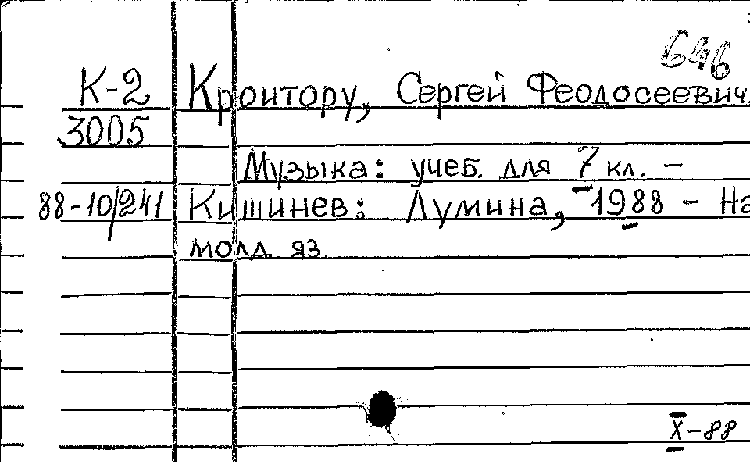 646
К-2 Кроитору, Сергей Феодосеевич.
3005
Музыка: учеб. для 7 кл. –
88-10/241 Кишинев: Лумина, 1988 – На
молд. яз.
X-88